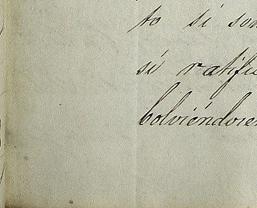 to si son
si ratific
bolviéndose